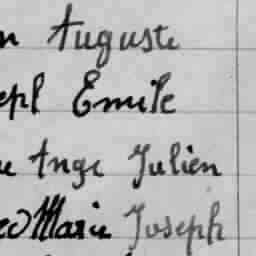 n Auguste
eph Emile
e Ange Julien
Marie Joseph